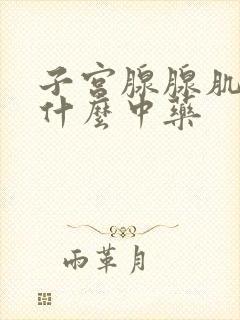 子宮腺腺肌
什麼中藥
雨革月